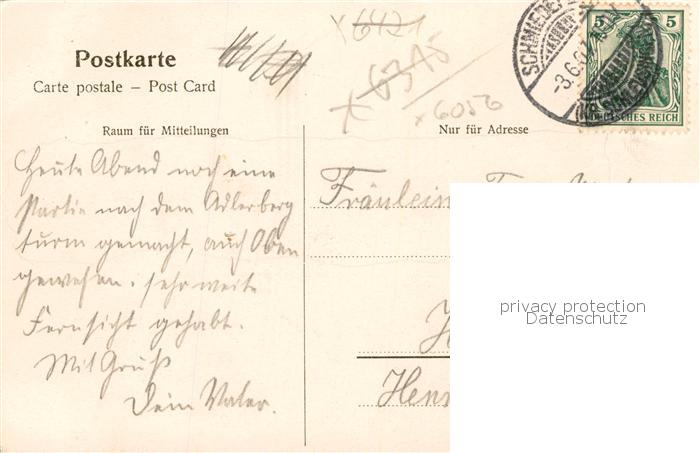 Postkarte
Carte postale – Post Card
Raum für Mitteilungen
Heute Abend noch eine
Partie nach dem Adlerberg
turm gemacht, auch Oben
gewesen. sehr weite
Fernsicht gehabt.
Mit Gruß
Dein Vater.
x 6121
x 6315
x 6056
Nur für Adresse
Fräulein
SCHMIEDE
3.6.0
5 5
DEUTSCHES REICH
privacy protection
Datenschutz